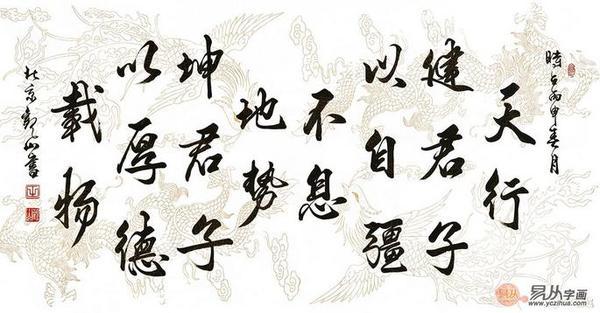 時在丙申春月
天行
健君子
以自彊
不息
地勢
坤君子
以厚德
載物
易从
易从字画
www.yczihua.com